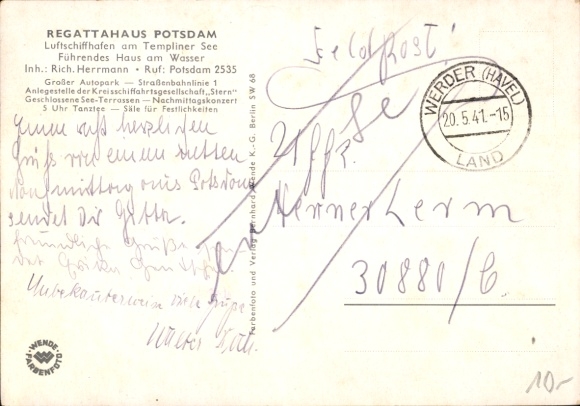 REGATTAHAUS POTSDAM
Luftschiffhafen am Templiner See
Führendes Haus am Wasser
Inh.: Rich. Herrmann • Ruf: Potsdam 2535
Großer Autopark — Straßenbahnlinie 1
Anlegestelle der Kreisschiffahrtsgesellschaft „Stern"
Geschlossene See-Terrassen — Nachmittagskonzert
5 Uhr Tanztee — Säle für Festlichkeiten
herzlichen
Gruß von einem netten
Nachmittag aus Potsdam
sendet Dir Gitta.
Freundliche Grüße
Unbekannterweise viele Grüße
Walter
WENDE-
FARBENFOTO
Farbenfoto und Verlag Bernhard Wende K.-G. Berlin SW 68
Feldpost!
WERDER (HAVEL)
20.5.41.-15
LAND
Uffz.
Werner
30880/C
10.-